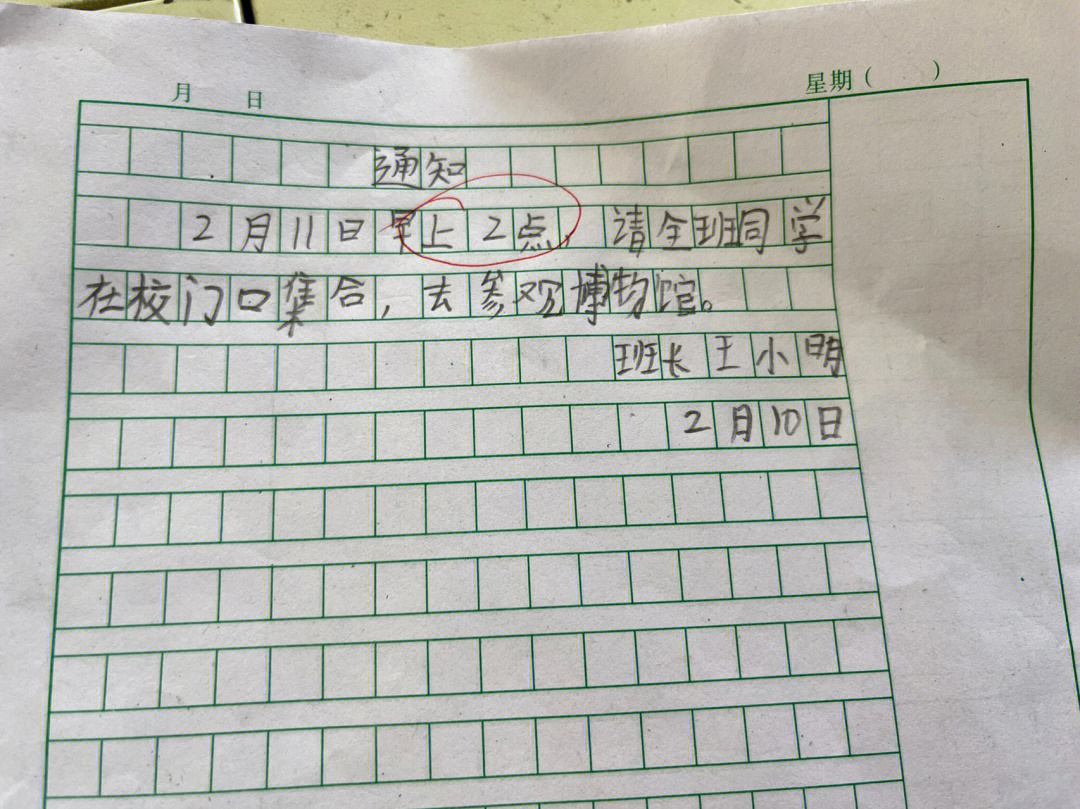 月 日 星期( )
通知
2月11日早上2点,请全班同学
在校门口集合,去参观博物馆。
班长王小明
2月10日